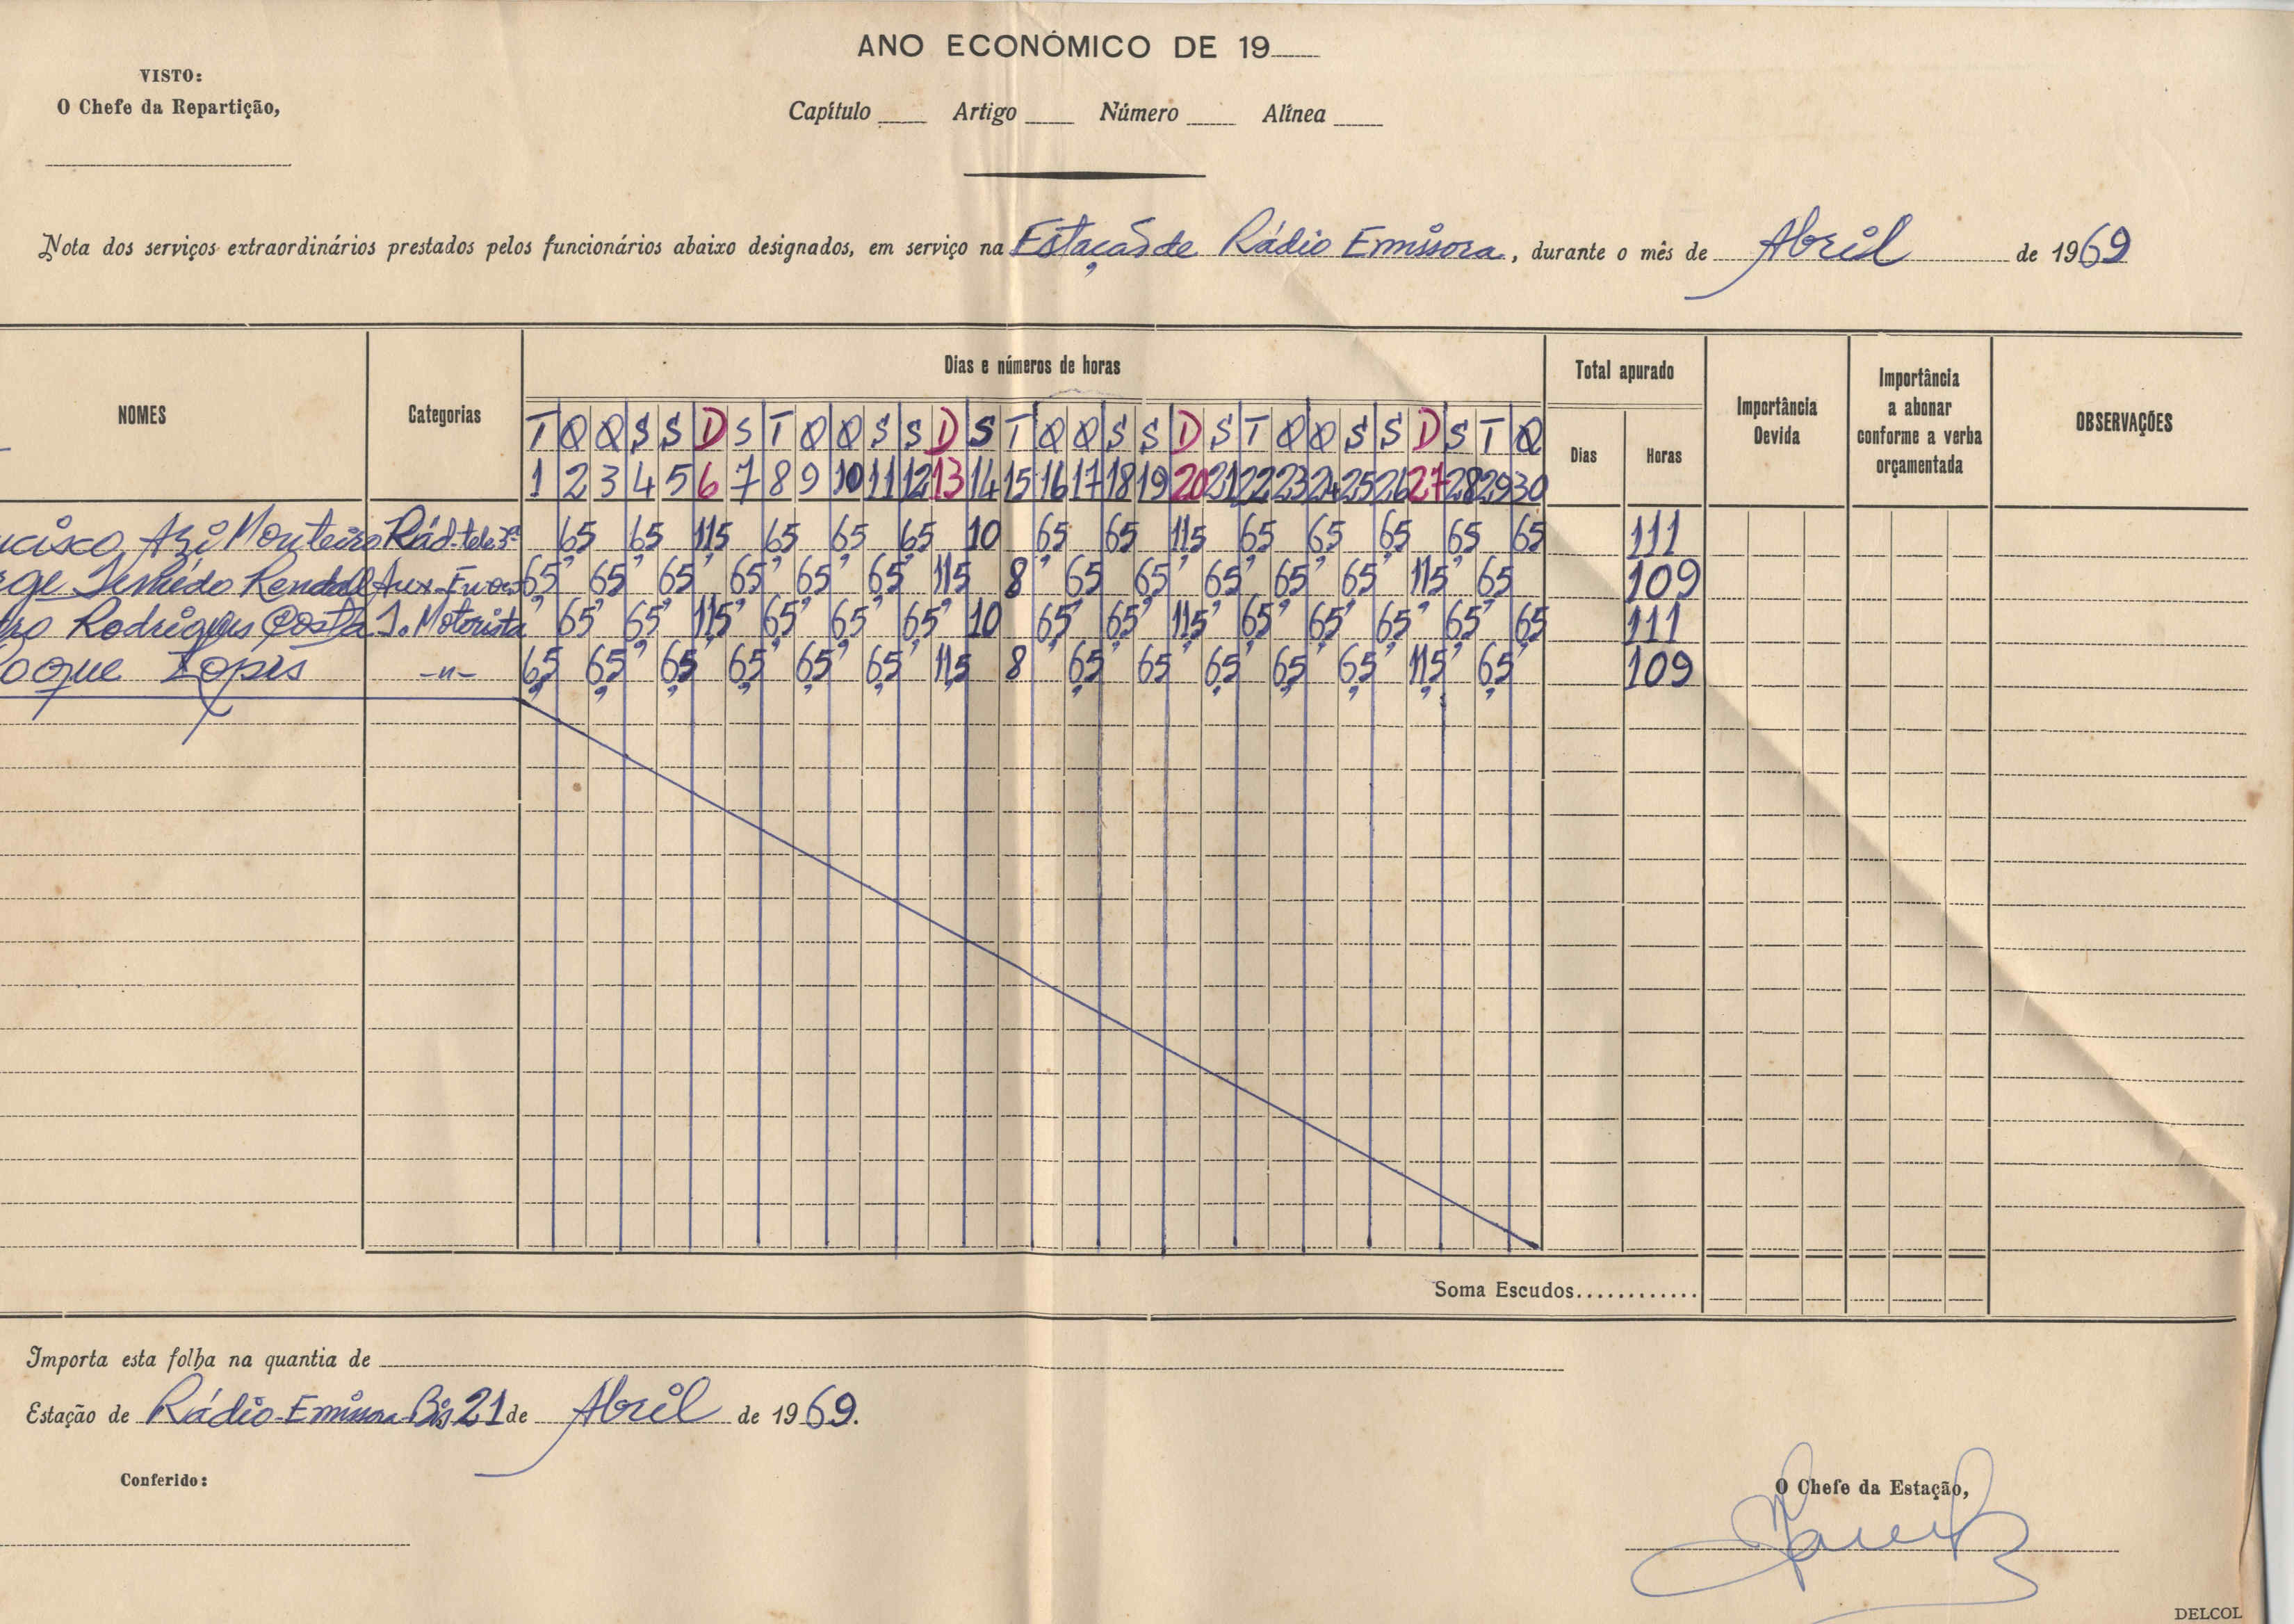 ANO ECONÓMICO DE 19
VISTO:
O Chefe da Repartição,
Capítulo Artigo Número Alínea
Nota dos serviços extraordinários prestados pelos funcionários abaixo designados, em serviço na Estação de Rádio Emissora, durante o mês de Abril de 1969
NOMES Categorias Dias e números de horas Total apurado Dias Horas Importância Devida Importância a abonar conforme a verba orçamentada OBSERVAÇÕES
T Q Q S S D S T Q Q S S D S T Q Q S S D S T Q Q S S D S T Q
1 2 3 4 5 6 7 8 9 10 11 12 13 14 15 16 17 18 19 20 21 22 23 24 25 26 27 28 29 30
Monteiro Rád-tele 3ª 6,5 6,5 11,5 6,5 6,5 6,5 10 6,5 6,5 11,5 6,5 6,5 6,5 6,5 6,5 111
Rendall Aux. 6,5 6,5 6,5 6,5 6,5 6,5 11,5 8 6,5 6,5 6,5 6,5 6,5 11,5 6,5 109
Rodrigues Costa Motorista 6,5 6,5 11,5 6,5 6,5 6,5 10 6,5 6,5 11,5 6,5 6,5 6,5 6,5 6,5 111
oque Lopes -"- 6,5 6,5 6,5 6,5 6,5 6,5 11,5 8 6,5 6,5 6,5 6,5 6,5 11,5 6,5 109
Soma Escudos............
Importa esta folha na quantia de
Estação de Rádio-Emissora 21 de Abril de 1969.
Conferido:
O Chefe da Estação,
DELCOL